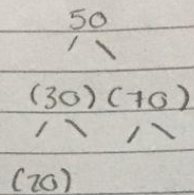 50
(30) (70)
(20)